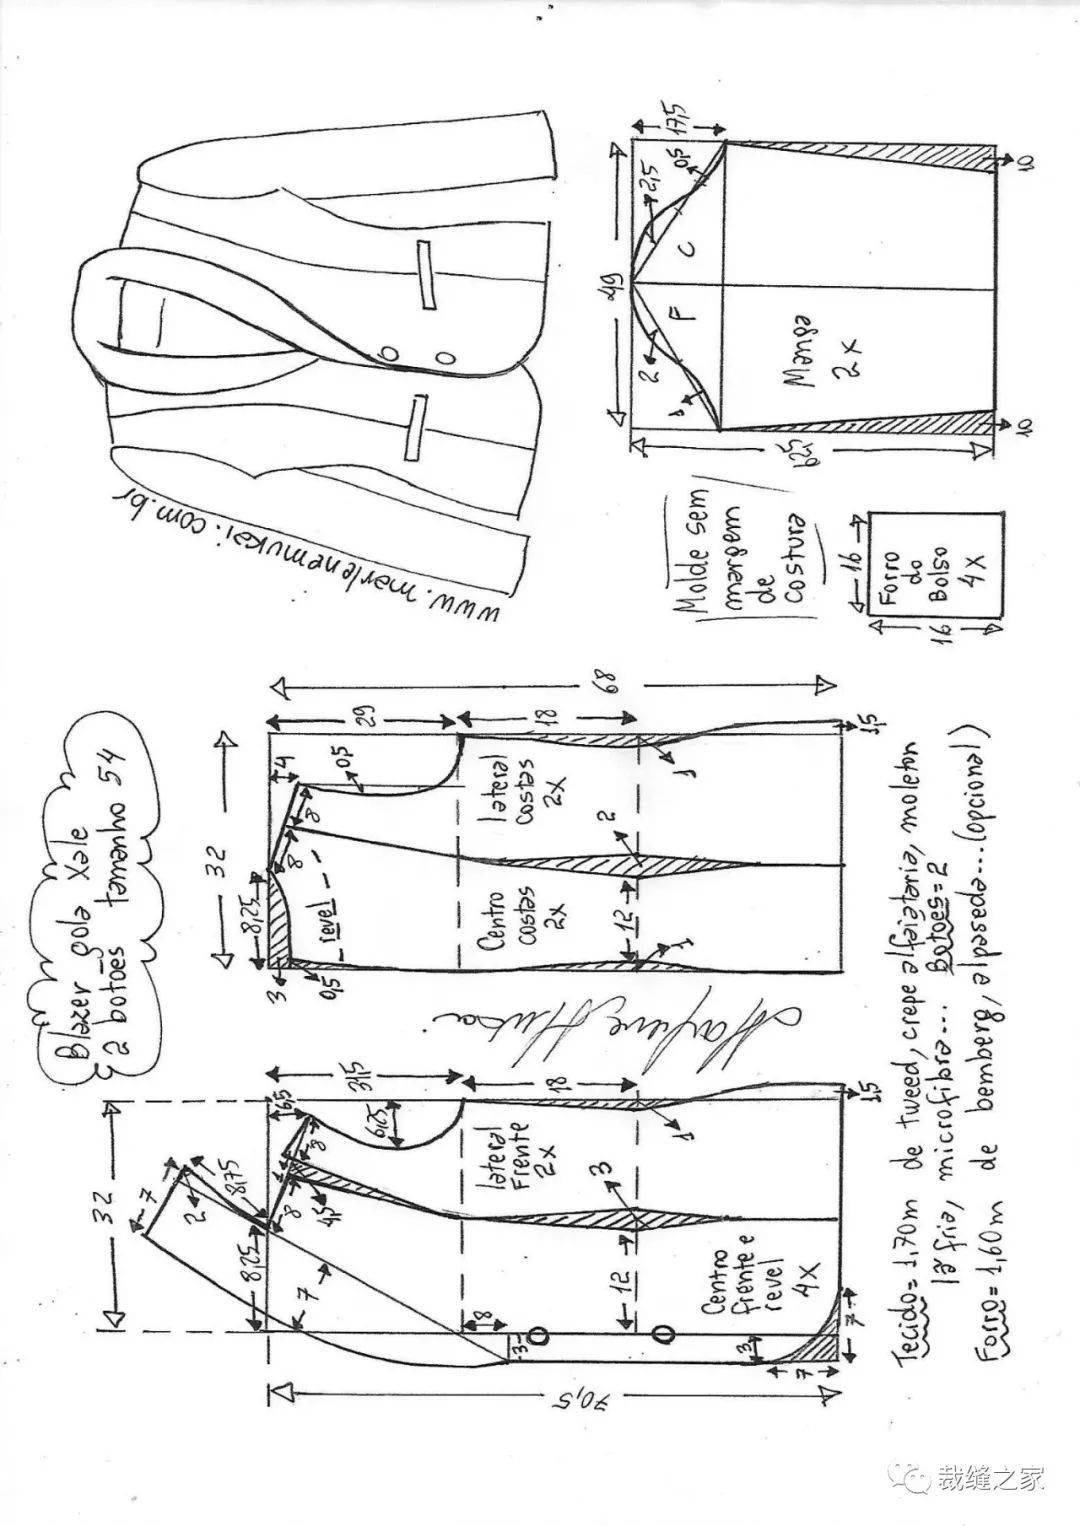 Blazer gola xale
2 botões tamanho 54
www.marlenemukai.com.br
32
7
2
8,75
8,25
7
6,5
8
8
4,5
31,5
6,25
18
lateral
Frente
2x
3
1
12
Centro
frente e
revel
4x
8
3
3
7
7
1,5
70,5
Marlene Mukai
32
8,25
3
0,5
8
8
4
0,5
29
18
68
revel
lateral
costas
2x
Centro
costas
2x
2
12
1
1
1,5
Molde sem
margem
de
costura
16
16
Forro
do
Bolso
4x
49
17,5
2,5
0,5
2
1
F
C
Manga
2x
62,5
10
10
Tecido = 1,70m de tweed, crepe alfaiataria, moleton
lã fria, microfibra... Botões = 2
Forro = 1,60m de bemberg, alpaseda... (opcional)
裁缝之家